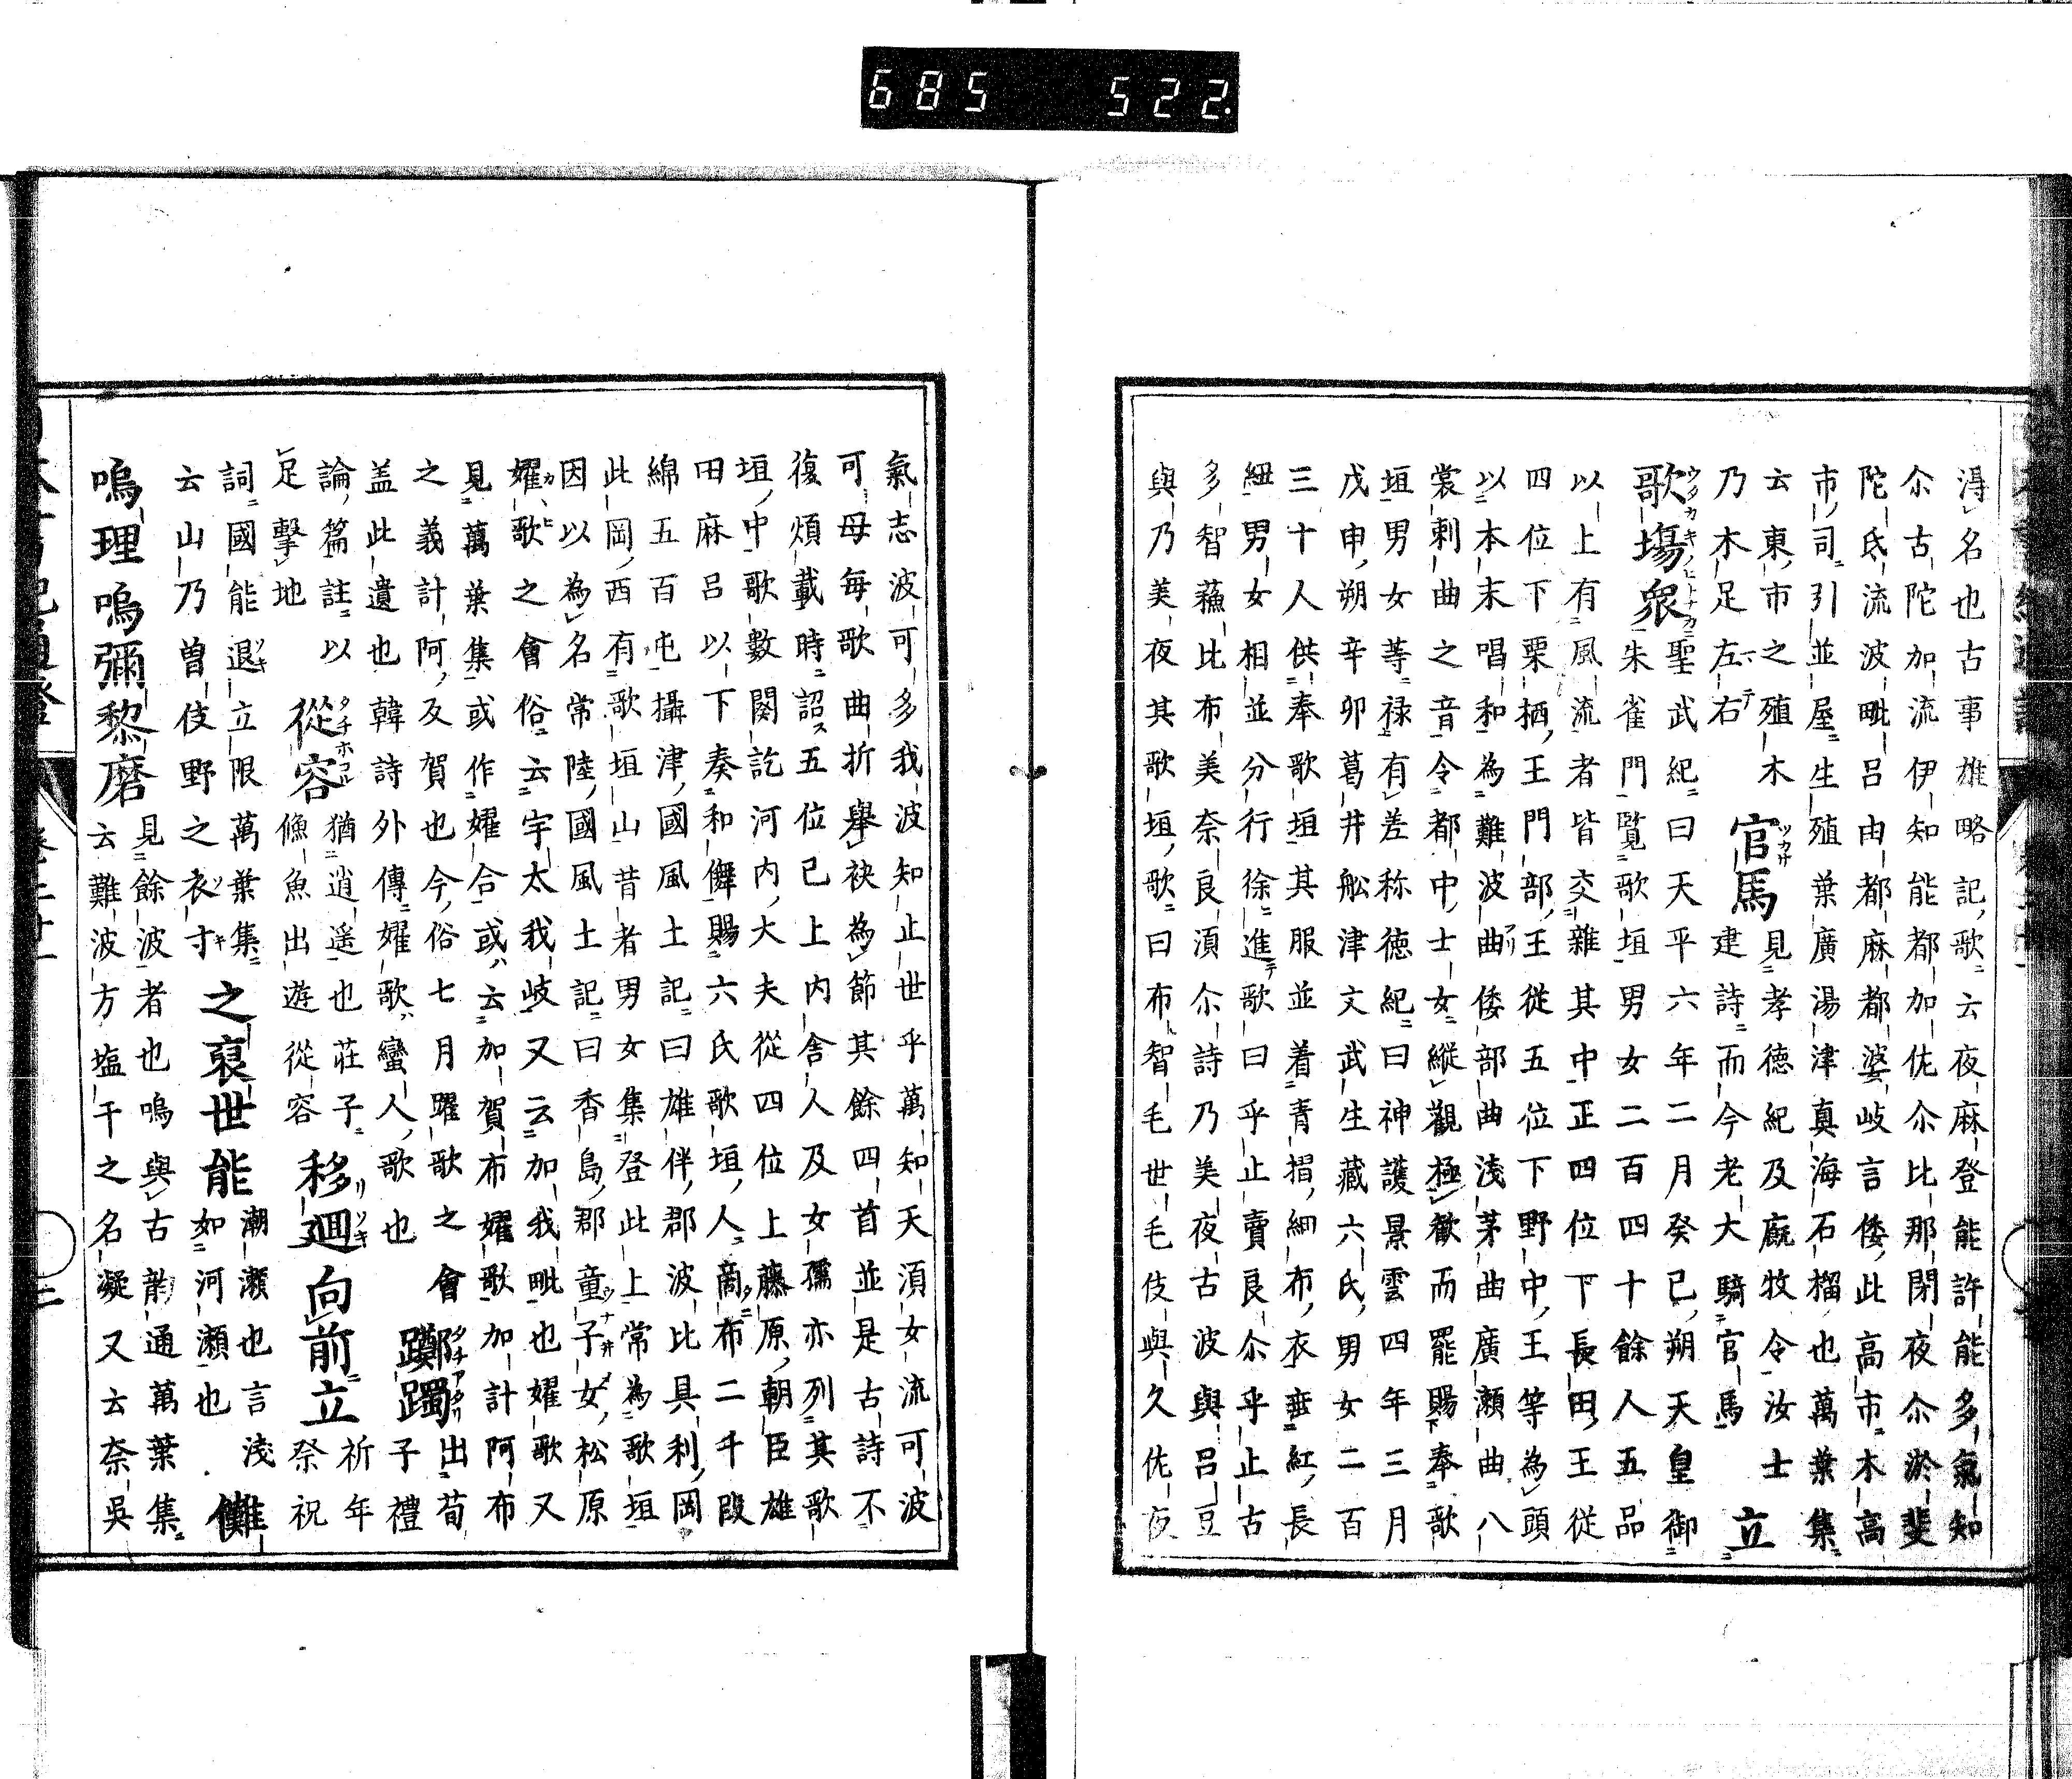 685 522.
淂名也古事雄略記歌云夜麻登能許能多氣知
尒古陀加流伊知能都加佐尒比那閉夜尒淤斐
陀氐流波毗呂由都麻都婆岐言倭此高市木高
市司引並屋生殖葉廣湯津真海石榴也萬葉集
云東市之殖木 官馬見孝德紀及廐牧令汝士
乃木足左右 建詩而今老大騎官馬 立
歌場衆聖武紀曰天平六年二月癸巳朔天皇御
朱雀門覽歌垣男女二百四十餘人五品
以上有風流者皆交雜其中正四位下長田王從
四位下栗栖王門部王從五位下野中王等為頭
以本末唱和為難波曲倭部曲淺茅曲廣瀬曲八
裳刺曲之音令都中士女縱觀極歡而罷賜奉歌
垣男女等禄有差称徳紀曰神護景雲四年三月
戊申朔辛卯葛井舩津文武生藏六氏男女二百
三十人供奉歌垣其服並着青摺細布衣垂紅長
紐男女相並分行徐進歌曰乎止賣良尒乎止古
多智蘓比布美奈良湏尒詩乃美夜古波與呂豆
與乃美夜其歌垣歌曰布智毛世毛伎與久佐夜
氣志波可多我波知止世乎萬知天湏女流可波
可母每歌曲折舉袂為節其餘四首並是古詩不
復煩載時詔五位已上内舍人及女孺亦列其歌
垣中歌數闋訖河内大夫從四位上藤原朝臣雄
田麻呂以下奏和儛賜六氏歌垣人商布二千段
綿五百屯攝津國風土記曰雄伴郡波比具利岡
此岡西有歌垣山昔者男女集登此上常為歌垣
因以為名常陸國風土記曰香島郡童子女松原
嬥歌之會俗云宇太我岐又云加我毗也嬥歌又
見萬葉集或作嬥合或云加賀布嬥歌加計阿布
之義計阿及賀也今俗七月躍歌之會 躑躅出荀
盖此遺也韓詩外傳嬥歌蠻人歌也 子禮
論篇註以 從容猶逍遥也莊子 移廻向前立祈年
足擊地 儵魚出遊從容 祭祝
詞國能退立限萬葉集 之裒世能潮瀬也言淺 儺
云山乃曽伎野之衣寸 如河瀬也
嗚理嗚彌黎磨見餘波者也嗚與古韵通萬葉集
云難波方塩干之名凝又云奈吳